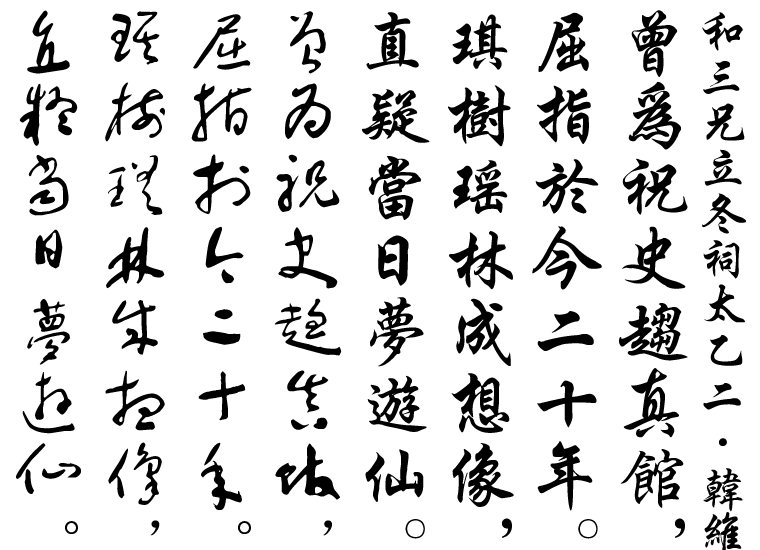 和三兄立冬祠太乙二·韓維
曾爲祝史趨真館，
屈指於今二十年。
琪樹瑶林成想像，
直疑當日夢遊仙。
曾为祝史趋真馆，
屈指於今二十年。
琪樹瑶林成想像，
直疑當日夢遊仙。